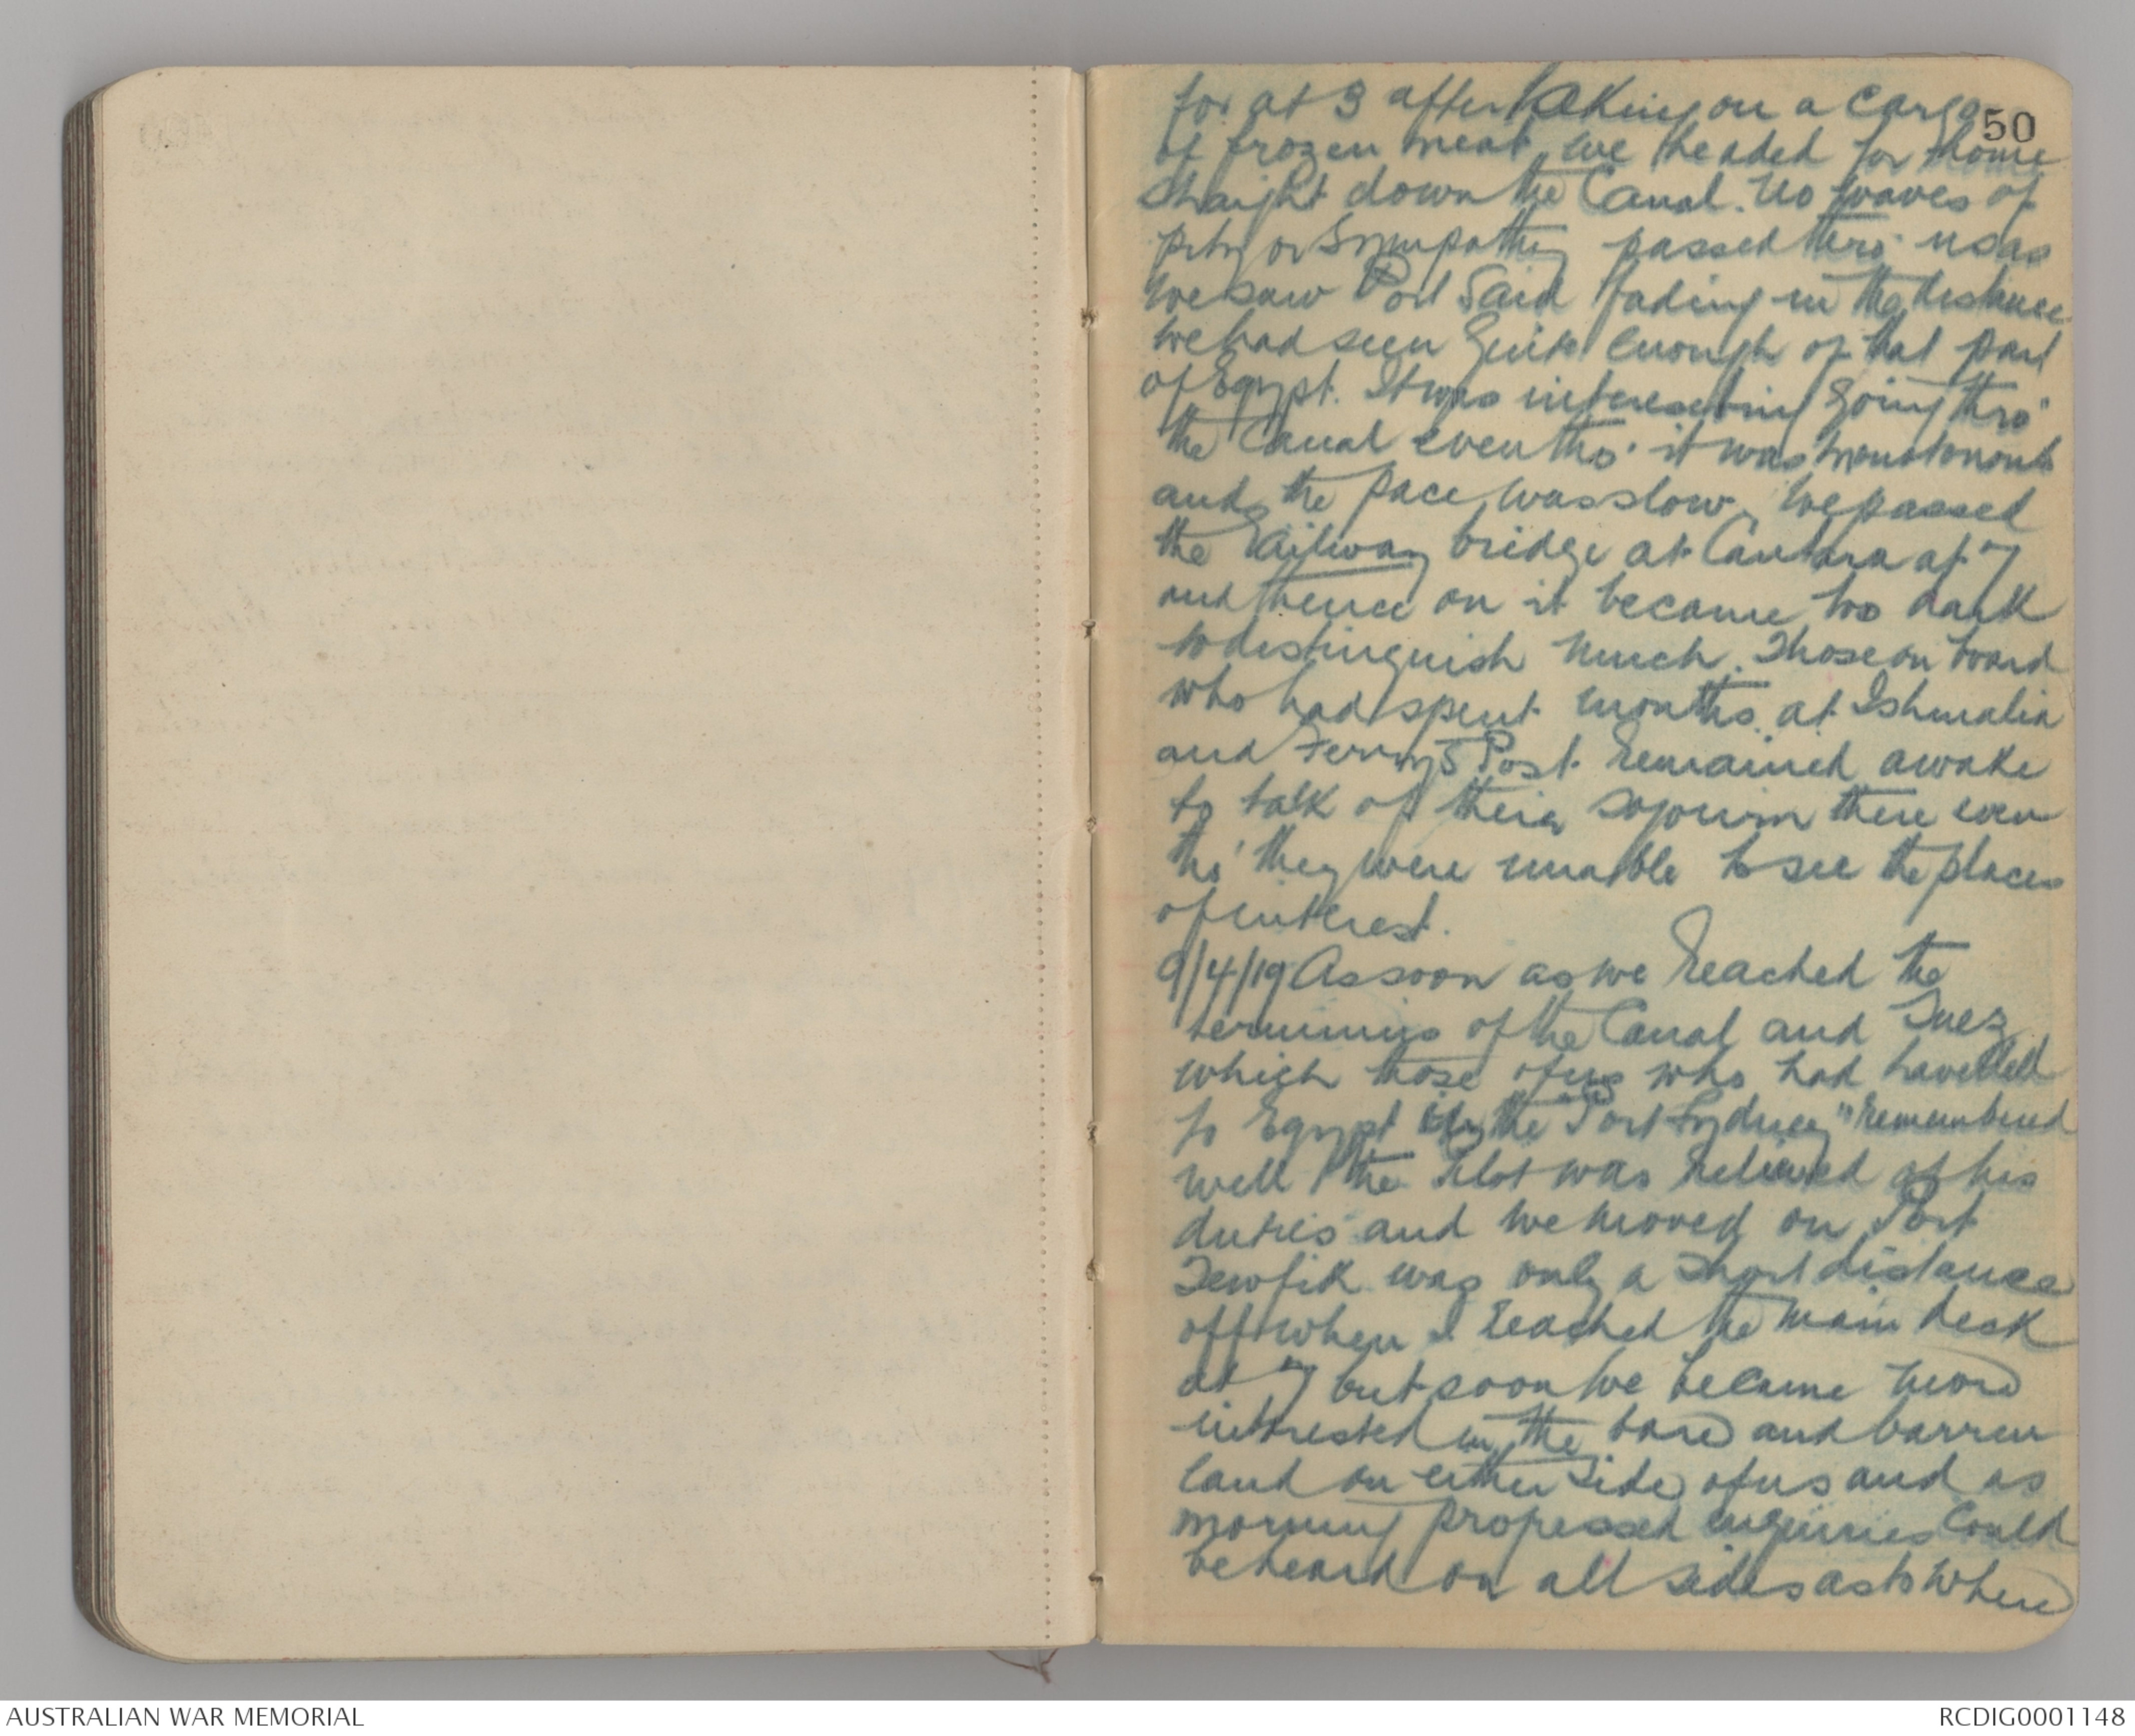 50
for at 3 after taking on a cargo
of frozen meat we headed for home
straight down the Canal. No waves of
pity or sympathy passed thro' us as
we saw Port Said fading in the distance
we had seen quite enough of that part
of Egypt. It was interesting going thro'
the Canal even tho' it was monotonous
and the pace was slow. We passed
the Railway bridge at Cantara at 7
and thence on it became too dark
to distinguish much. Those on board
who had spent months at Ishmalia
and Ferry Post remained awake
to talk of their sojourn there even
tho' they were unable to see the places
of interest.
9/4/19 As soon as we reached the
terminus of the Canal and Suez
which those of us who had travelled
to Egypt by the Port Sydney" remembered
well the Pilot was relieved of his
duties and we moved on Port
Tewfik was only a short distance
off when I reached the main deck
at 7 but soon we became more
interested in the bare and barren
land on either side of us and as
morning progressed enquiries could
be heard on all sides as to where
AUSTRALIAN WAR MEMORIAL
RCDIG0001148